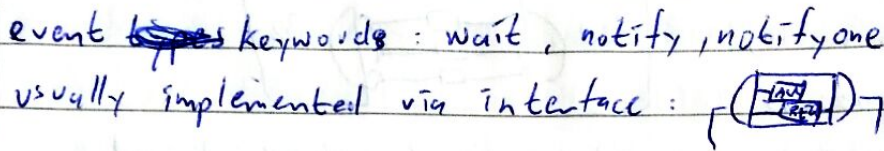 event keywords : wait , notify , notifyone
usually implemented via interface :